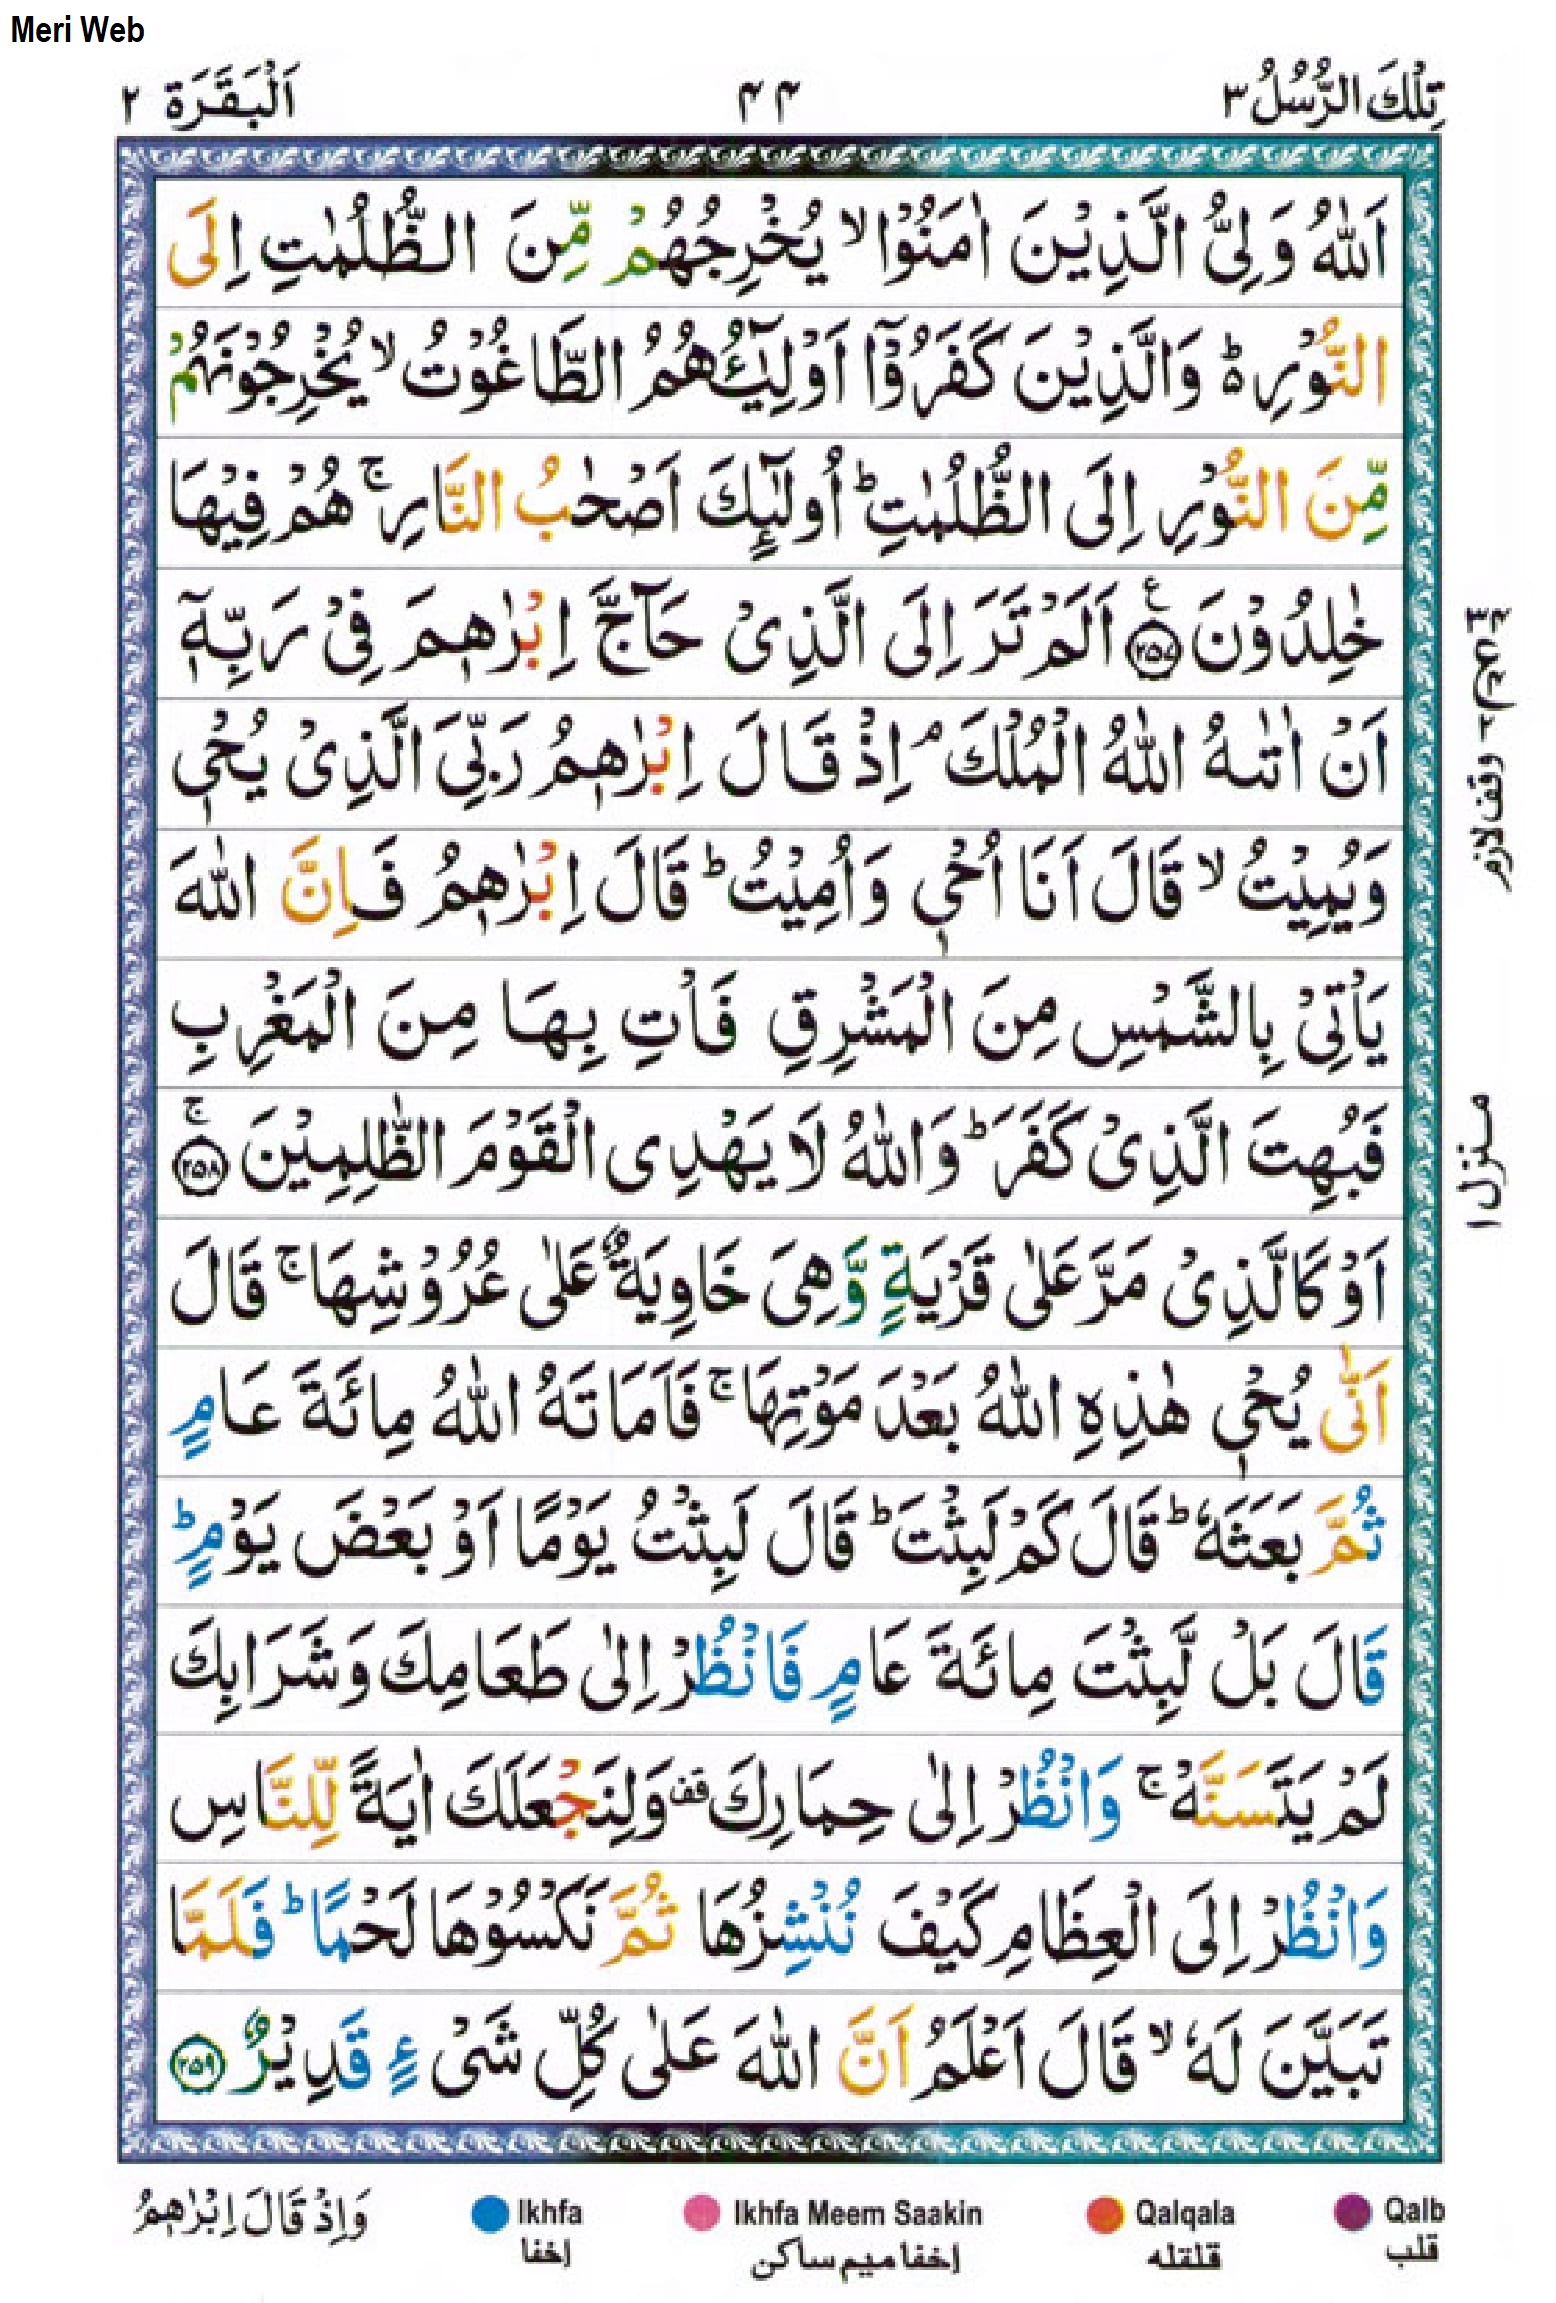 Meri Web
تِلْكَ الرُّسُلُ ٣
٤٤
اَلْبَقَرَة ٢
اَللّٰهُ وَلِىُّ الَّذِيْنَ اٰمَنُوْا ۙ يُخْرِجُهُمْ مِّنَ الظُّلُمٰتِ اِلَى
النُّوْرِ ؕ۬ وَالَّذِيْنَ كَفَرُوْۤا اَوْلِيٰٓـُٔهُمُ الطَّاغُوْتُ ۙ يُخْرِجُوْنَهُمْ
مِّنَ النُّوْرِ اِلَى الظُّلُمٰتِ ؕ اُولٰٓئِكَ اَصْحٰبُ النَّارِ ۚ هُمْ فِيْهَا
خٰلِدُوْنَ ﴿۲۵۷﴾ ع اَلَمْ تَرَ اِلَى الَّذِىْ حَآجَّ اِبْرٰهٖمَ فِىْ رَبِّهٖۤ
اَنْ اٰتٰىهُ اللّٰهُ الْمُلْكَ ۘ اِذْ قَالَ اِبْرٰهٖمُ رَبِّىَ الَّذِىْ يُحْىٖ
وَيُمِيْتُ ۙ قَالَ اَنَا اُحْىٖ وَاُمِيْتُ ؕ قَالَ اِبْرٰهٖمُ فَاِنَّ اللّٰهَ
يَاْتِىْ بِالشَّمْسِ مِنَ الْمَشْرِقِ فَاْتِ بِهَا مِنَ الْمَغْرِبِ
فَبُهِتَ الَّذِىْ كَفَرَ ؕ وَاللّٰهُ لَا يَهْدِى الْقَوْمَ الظّٰلِمِيْنَ ﴿۲۵۸﴾ ۚ
اَوْ كَالَّذِىْ مَرَّ عَلٰى قَرْيَةٍ وَّهِىَ خَاوِيَةٌ عَلٰى عُرُوْشِهَا ۚ قَالَ
اَنّٰى يُحْىٖ هٰذِهِ اللّٰهُ بَعْدَ مَوْتِهَا ۚ فَاَمَاتَهُ اللّٰهُ مِائَةَ عَامٍ
ثُمَّ بَعَثَهٗ ؕ قَالَ كَمْ لَبِثْتَ ؕ قَالَ لَبِثْتُ يَوْمًا اَوْ بَعْضَ يَوْمٍ ؕ
قَالَ بَلْ لَّبِثْتَ مِائَةَ عَامٍ فَانْظُرْ اِلٰى طَعَامِكَ وَشَرَابِكَ
لَمْ يَتَسَنَّهْ ۚ وَانْظُرْ اِلٰى حِمَارِكَ قف وَلِنَجْعَلَكَ اٰيَةً لِّلنَّاسِ
وَانْظُرْ اِلَى الْعِظَامِ كَيْفَ نُنْشِزُهَا ثُمَّ نَكْسُوْهَا لَحْمًا ؕ فَلَمَّا
تَبَيَّنَ لَهٗ ۙ قَالَ اَعْلَمُ اَنَّ اللّٰهَ عَلٰى كُلِّ شَىْءٍ قَدِيْرٌ ﴿۲۵۹﴾
وقف لازم
منزل ١
وَاِذْ قَالَ اِبْرٰهٖمُ
Ikhfa
اخفا
Ikhfa Meem Saakin
اخفا میم ساکن
Qalqala
قلقله
Qalb
قلب